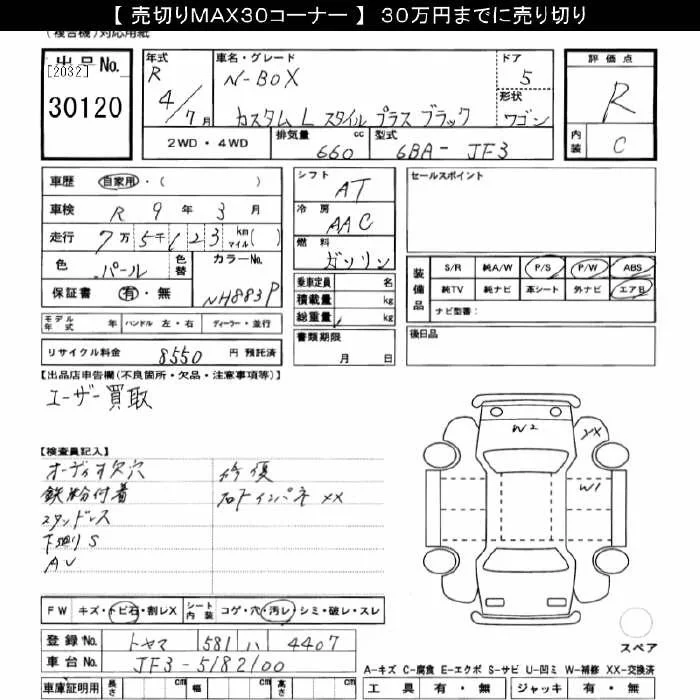 【 売切りMAX30コーナー 】 30万円までに売り切り
(複合機)対応用紙
出品No.
[2032]
30120
年式
R
4/7月
車名・グレード
N-BOX
カスタム L スタイル プラス ブラック
ドア
5
形状
ワゴン
評価点
R
内装
C
2WD・4WD
排気量
660
cc
型式
6BA- JF3
車歴
自家用・( )
車検
R 9年 3月
走行
7万5千123 km マイル( )
色
パール
色替
カラーNo.
NH883P
保証書
有・無
シフト
AT
冷房
AAC
燃料
ガソリン
乗車定員
名
積載量
kg
総重量
kg
書類期限
月 日
セールスポイント
装備品
S/R 純A/W P/S P/W ABS
純TV 純ナビ 革シート 外ナビ エアB
ナビ型番:
後日品
モデル年式 年 ハンドル 左・右 ディーラー・並行
リサイクル料金 8550 円 預託済
【出品店申告欄(不良箇所・欠品・注意事項等)】
ユーザー買取
【検査員記入】
オーディオ欠穴
鉄粉付着
スタッドレス
下廻りS
AU
修復
右トインパネ XX
W2
YX
W1
FW キズ・トビ石・割レX シート内装 コゲ・穴・汚レ・シミ・破レ・スレ
登録No. トヤマ 581 ハ 4407
車台No. JF3-5182100
車庫証明用 長さ cm 幅 cm 高さ cm
スペア
A-キズ C-腐食 E-エクボ S-サビ U-凹ミ W-補修 XX-交換済
工具 有・無 ジャッキ 有・無